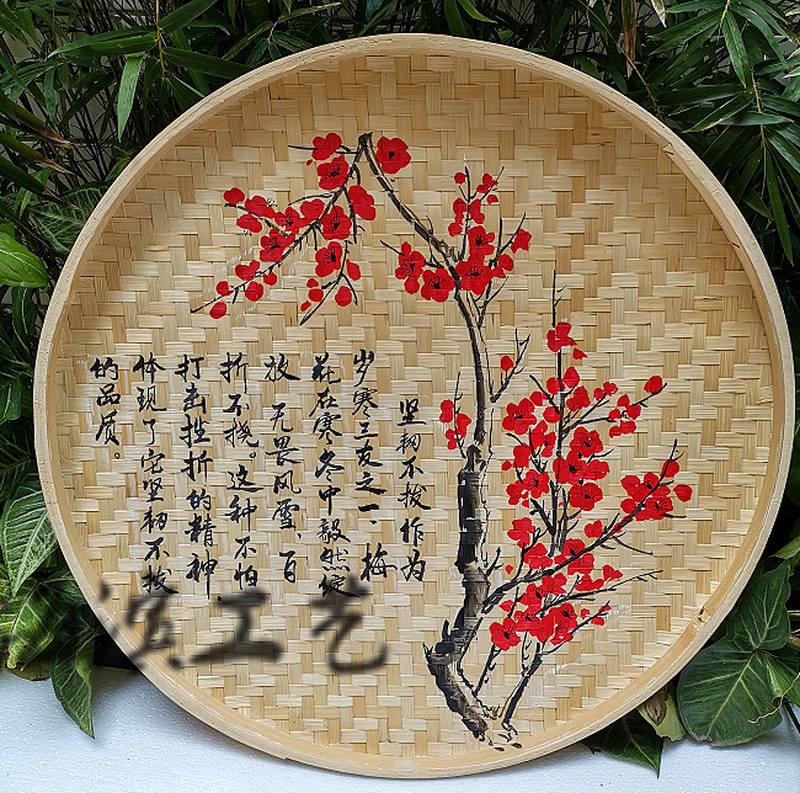 坚韧不拔作为
岁寒三友之一，梅
花在寒冬中毅然绽
放，无畏风雪，百
折不挠。这种不怕
打击挫折的精神，
体现了它坚韧不拔
的品质。
滨工艺